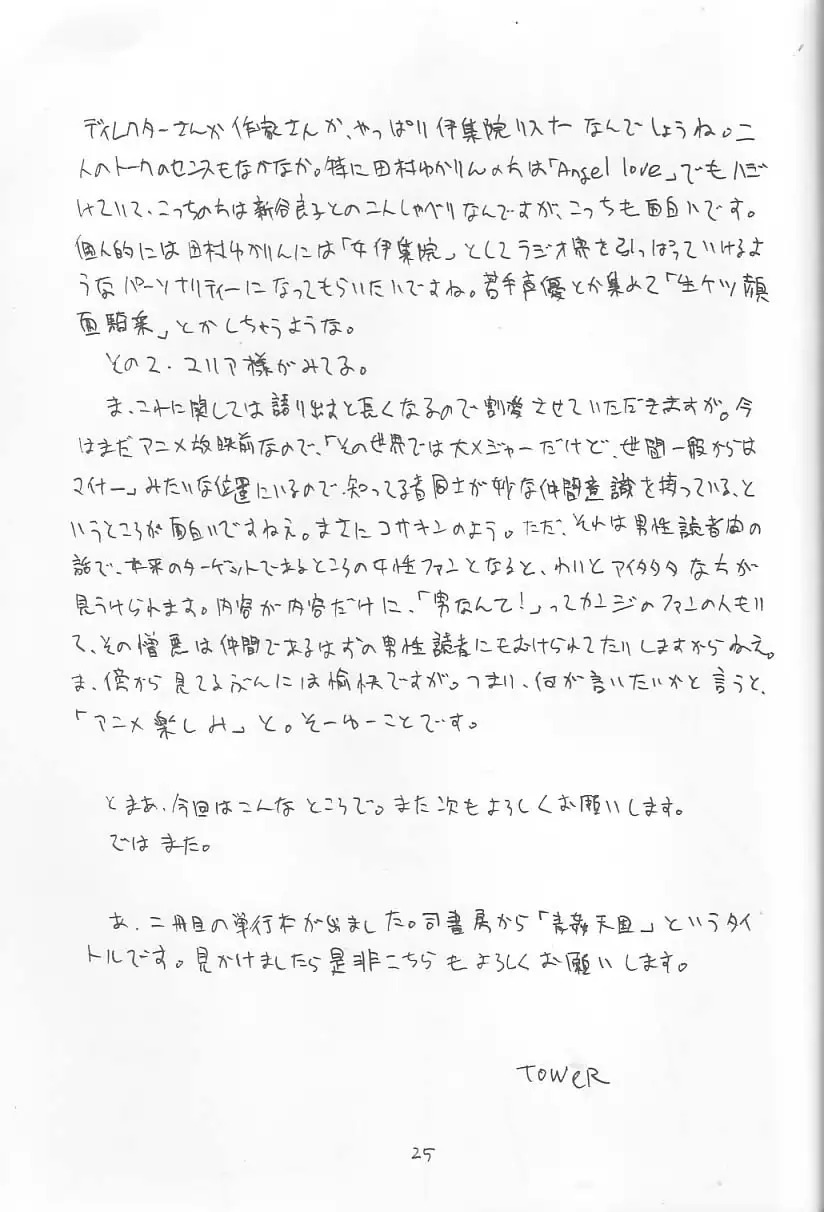 ディレクターさんか作家さんか、やっぱり伊集院リスナーなんでしょうね。二
人のトークのセンスもなかなか。特に田村ゆかりんの方は「Angel love」でもハジ
けていて、こっちの方は新谷良子とのこんしゃべりなんですが、こっちも面白いです。
個人的には田村ゆかりんには「女伊集院」としてラジオ界を引っぱっていけるよ
うなパーソナリティーになってもらいたいですね。若手声優とか集めて「生ケツ顔
面騎乗」とかしちゃうような。
その2.マリア様がみてる。
ま、これに関しては語り出すと長くなるので割愛させていただきますが。今
はまだアニメ放映前なので、「その世界では大メジャーだけど、世間一般からは
マイナー」みたいな位置にいるので、知ってる者同士が妙な仲間意識を持っている、と
いうところが面白いですねえ。まさにコサキンのよう。ただ、それは男性読者内の
話で、本来のターゲットであるところの女性ファンとなると、わりとアイタタタな方が
見うけられます。内容が内容だけに、「男なんて!」ってカンジのファンの人もい
て、その憎悪は仲間であるはずの男性読者にもむけられてたりしますからねえ。
ま、傍から見てるぶんには愉快ですが。つまり、何が言いたいかと言うと、
「アニメ楽しみ」と。そーゆーことです。
とまあ、今回はこんなところで。また次もよろしくお願いします。
ではまた。
あ、二冊目の単行本が出ました。司書房から「青姦天国」というタイ
トルです。見かけましたら是非こちらもよろしくお願いします。
TOWeR
25